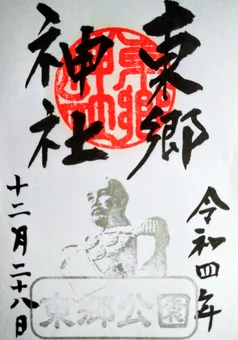 東郷
神社
令和四年
十二月二十八日
東郷公園